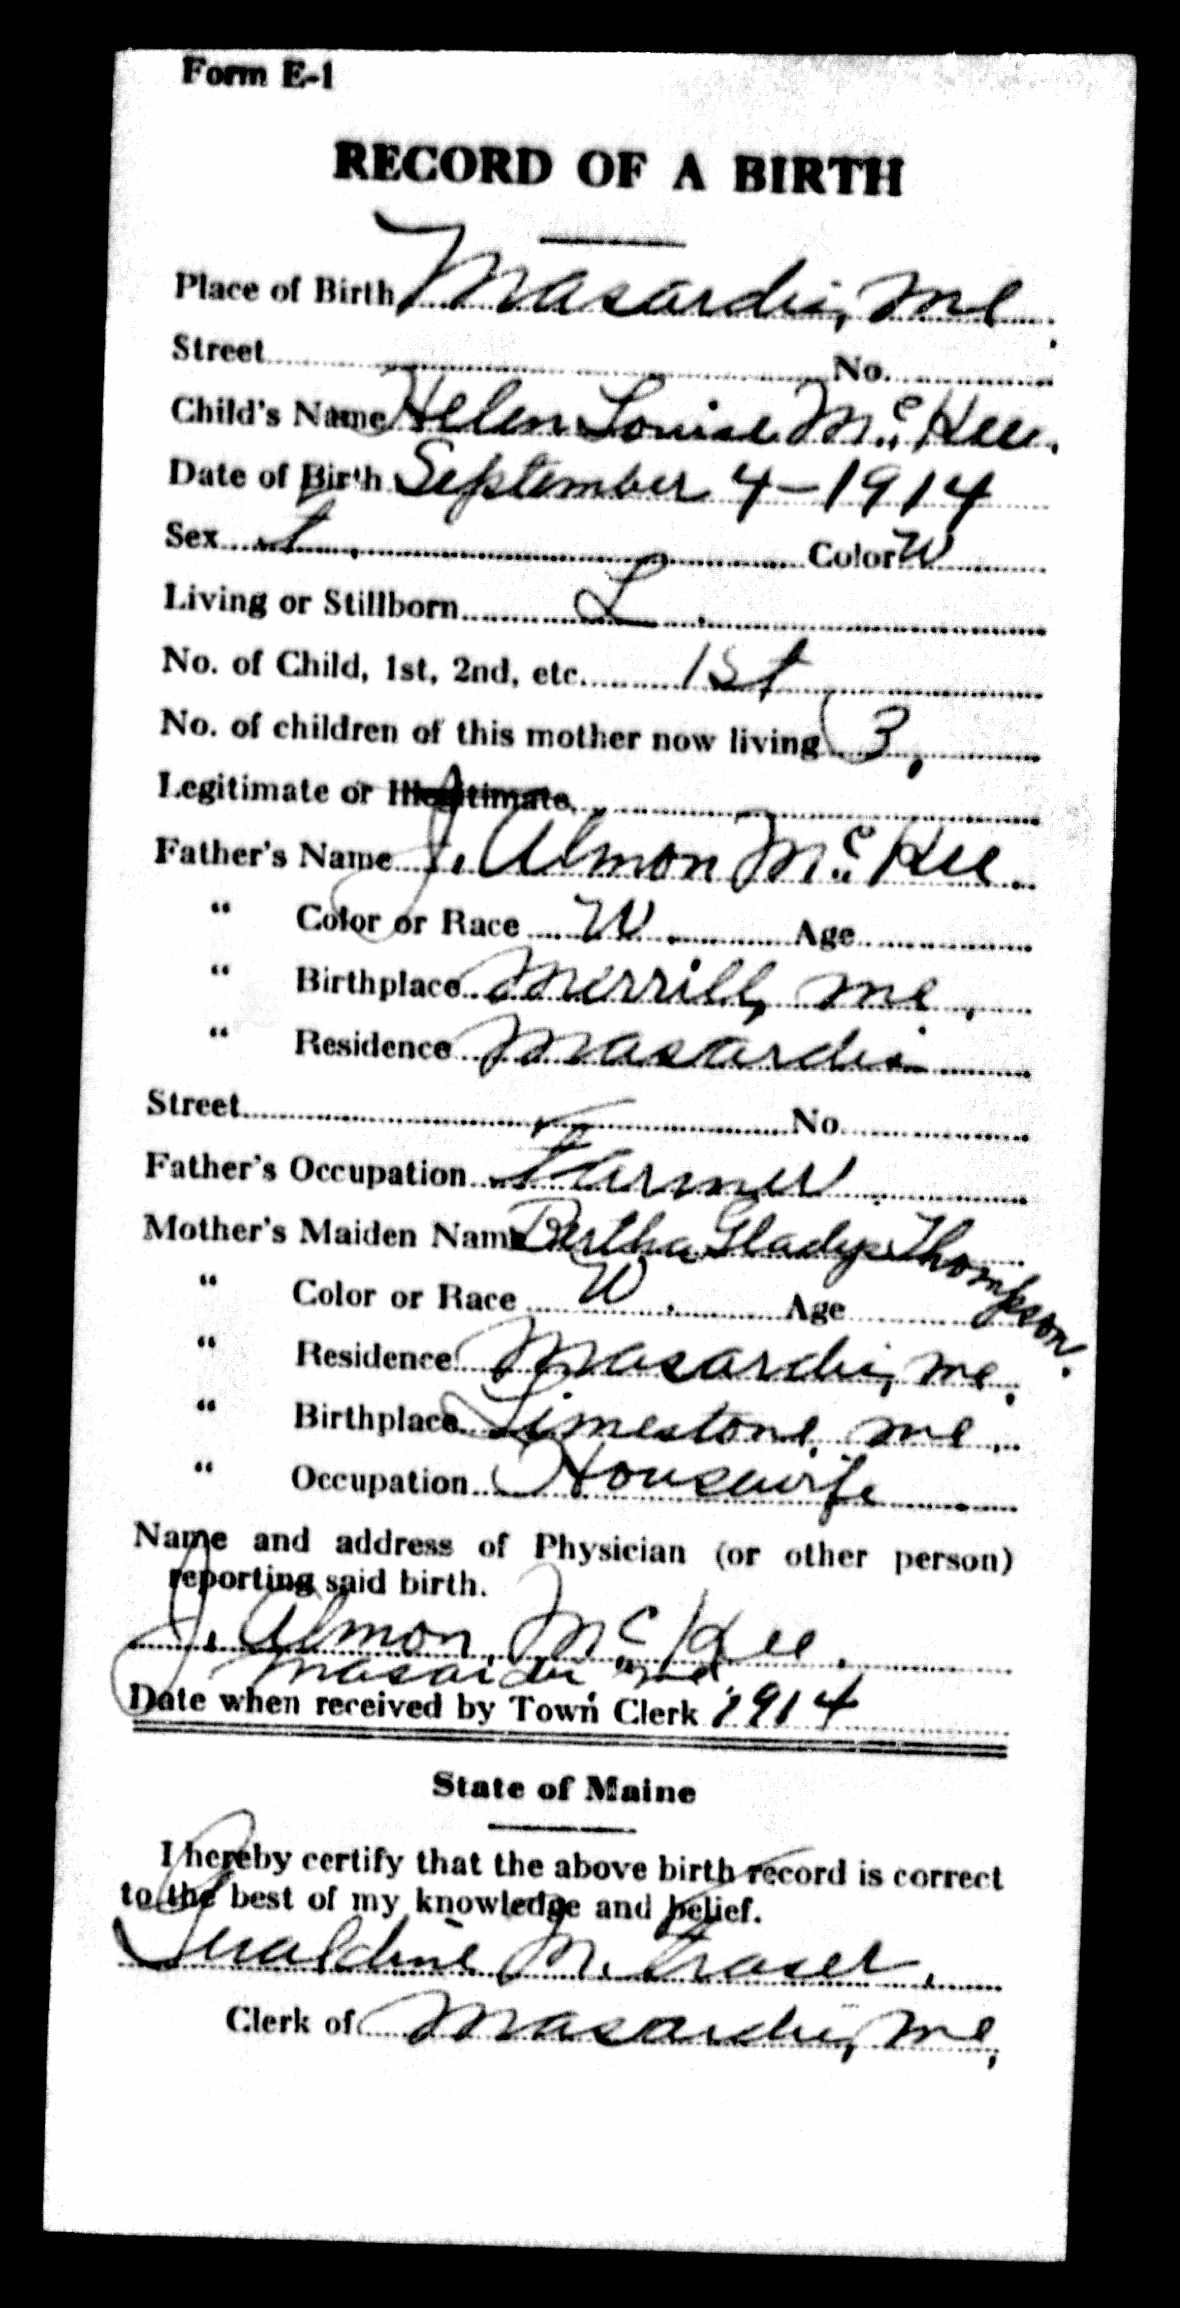 Form E-1
RECORD OF A BIRTH
Place of Birth Masardis, Me.
Street No.
Child's Name Helen Louise McKee.
Date of Birth September 4-1914
Sex f. Color W
Living or Stillborn L.
No. of Child, 1st, 2nd, etc. 1st
No. of children of this mother now living 3.
Legitimate or Illegitimate.
Father's Name J. Almon McKee
" Color or Race W. Age
" Birthplace Merrill, Me.
" Residence Masardis
Street No.
Father's Occupation Farmer
Mother's Maiden Name Bertha Gladys Thompson.
" Color or Race W. Age
" Residence Masardis, Me.
" Birthplace Limestone, Me.
" Occupation Housewife
Name and address of Physician (or other person)
reporting said birth.
J. Almon McKee.
Masardis Me.
Date when received by Town Clerk 1914
State of Maine
I hereby certify that the above birth record is correct
to the best of my knowledge and belief.
Geraldine M. Fraser.
Clerk of Masardis, Me.